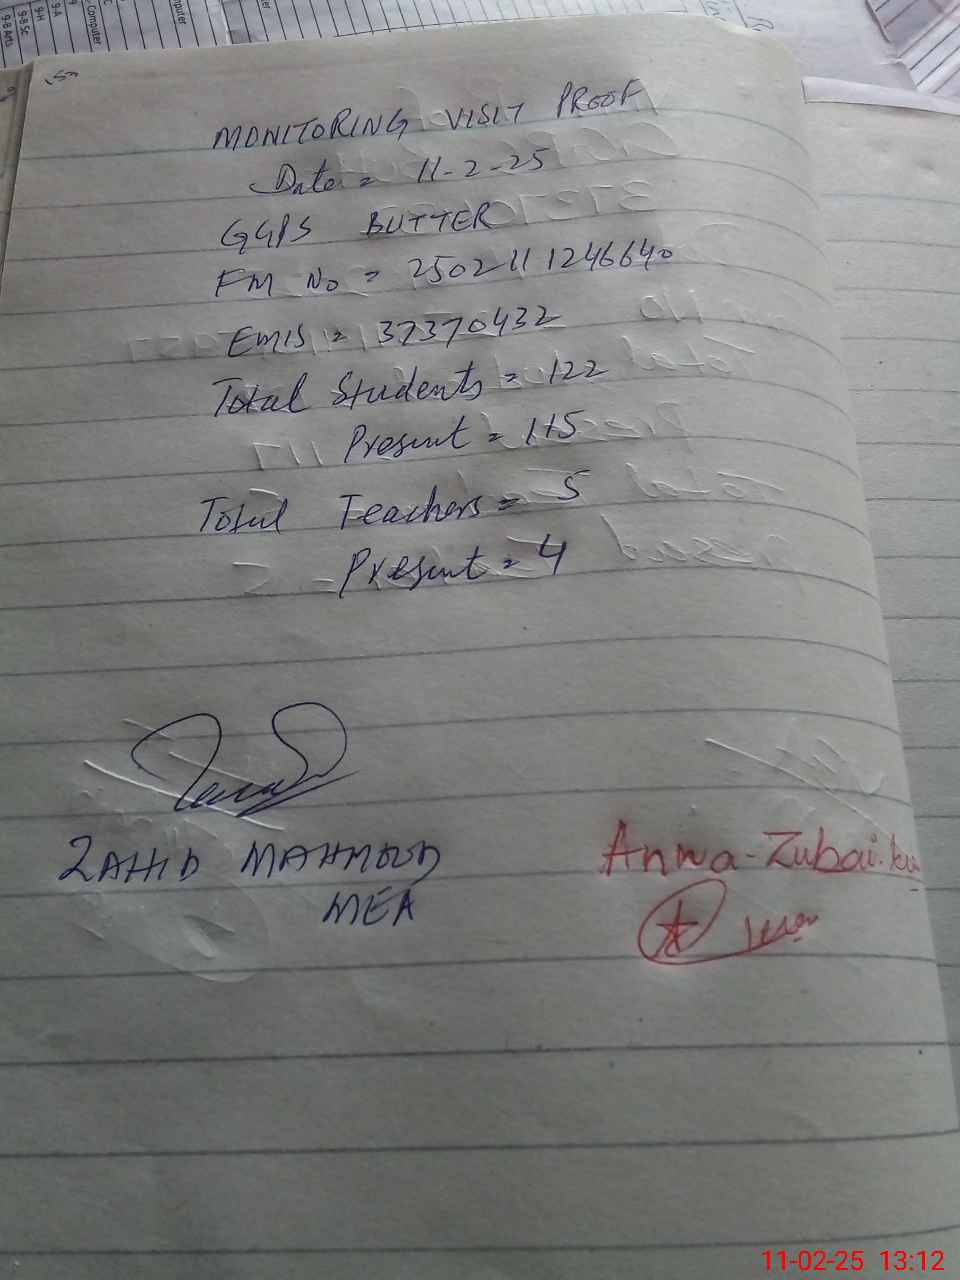 MONITORING VISIT PROOF
Date = 11-2-25
GGPS BUTTER
FM No = 2502111246640
EMIS = 37370432
Total Students = 122
Present = 115
Total Teachers = 5
Present = 4
ZAHID MAHMOOD
MEA
11-02-25 13:12